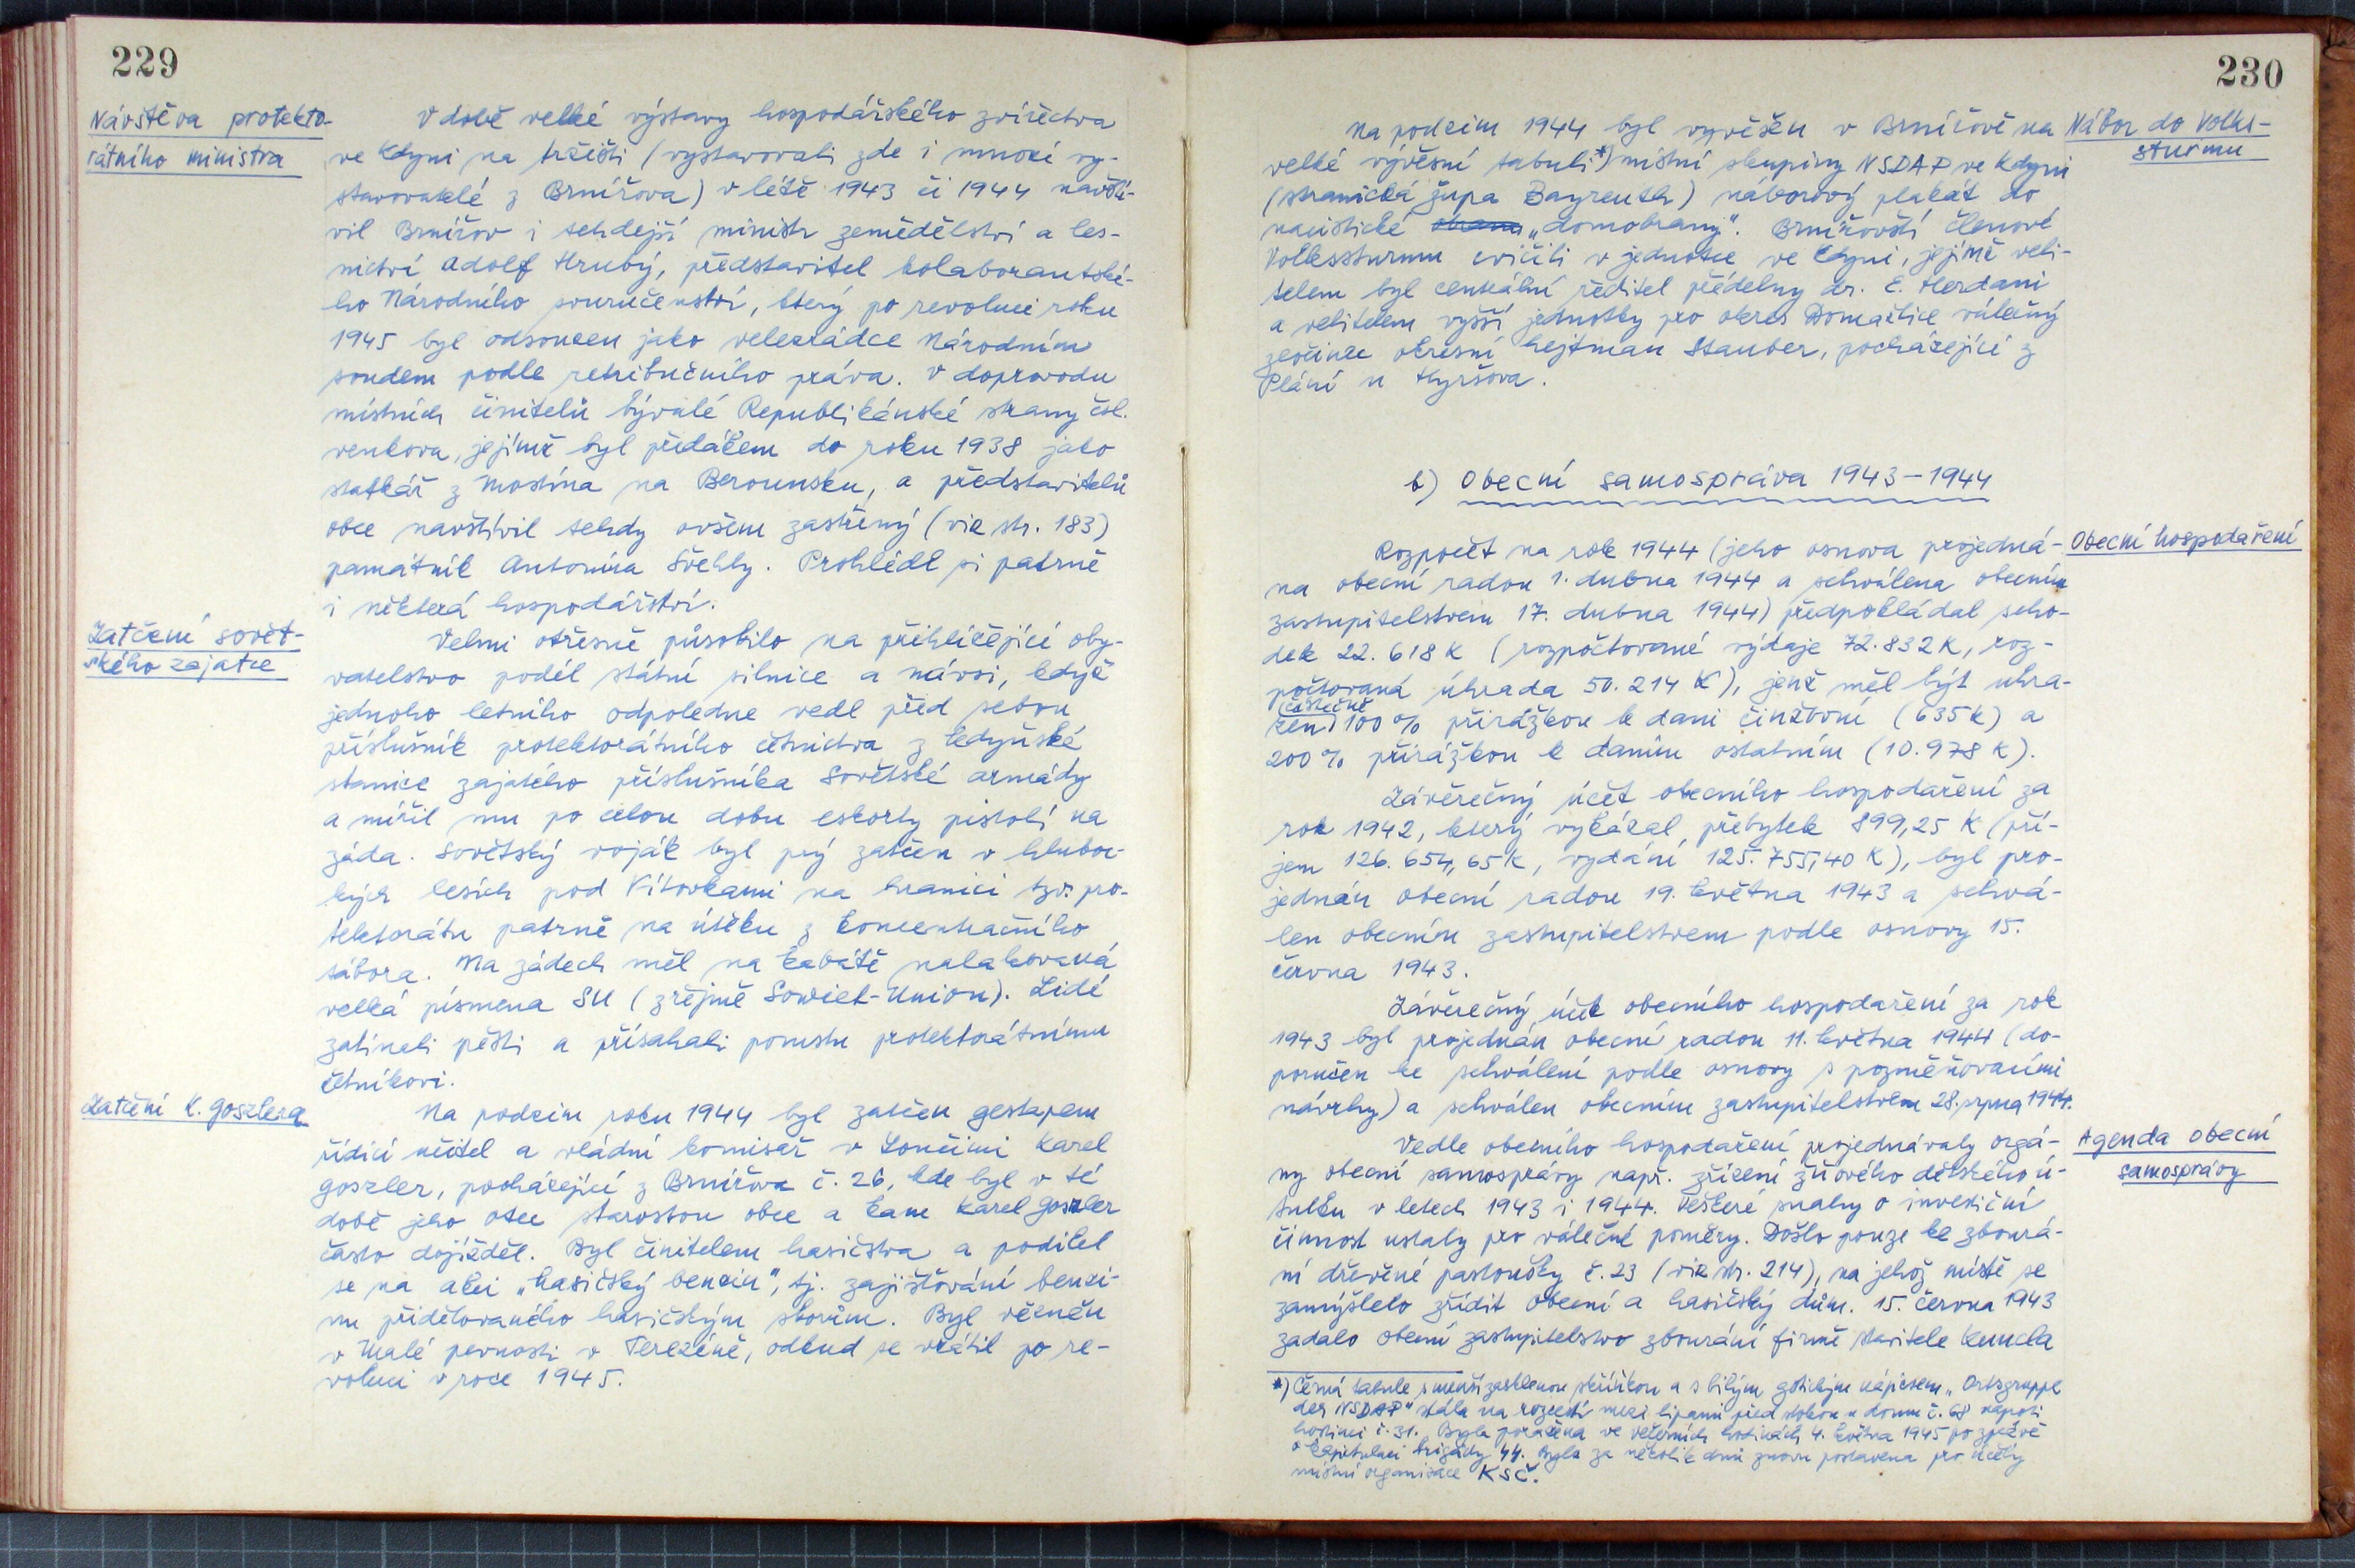 229
Návštěva protekto-
rátního ministra
V době velké výstavy hospodářského zvířectva
ve Kdyni na tržišti (vystavovali zde i mnozí vy-
stavovatelé z Brnířova) v létě 1943 či 1944 navští-
vil Brnířov i tehdejší ministr zemědělství a les-
nictví Adolf Hrubý, představitel kolaborantské-
ho Národního souručenství, který po revoluci roku
1945 byl odsouzen jako velezrádce Národním
soudem podle retribučního práva. V doprovodu
místních činitelů bývalé Republikánské strany čsl.
venkova, jejímž byl předákem do roku 1938 jako
statkář z Mostína na Berounsku, a představitelů
obce navštívil tehdy ovšem zastřený (viz str. 183)
památník Antonína Švehly. Prohlédl si patrně
i některá hospodářství.
Zatčení sovět-
ského zajatce
Velmi otřesně působilo na přihlížející oby-
vatelstvo podél státní silnice a návsi, když
jednoho letního odpoledne vedl před sebou
příslušník protektorátního četnictva z kdyňské
stanice zajatého příslušníka Sovětské armády
a mířil mu po celou dobu eskorty pistolí na
záda. Sovětský voják byl prý zatčen v hlubo-
kých lesích pod Vítovkami na hranici tzv. pro-
tektorátu patrně na útěku z koncentračního
tábora. Na zádech měl na kabátě nalakovaná
velká písmena SU (zřejmě Sowiet-Union). Lidé
zatínali pěsti a přísahali pomstu protektorátnímu
četníkovi.
Zatčení K. Goszlera
Na podzim roku 1944 byl zatčen gestapem
řídící učitel a vládní komisař v Loučimi Karel
Goszler, pocházející z Brnířova č. 26, kde byl v té
době jeho otec starostou obce a kam Karel Goszler
často dojížděl. Byl činitelem hasičstva a podílel
se na akci „hasičský benzin", tj. zajišťování benzi-
nu přidělovaného hasičským sborům. Byl vězněn
v Malé pevnosti v Terezíně, odkud se vrátil po re-
voluci v roce 1945.
230
Nábor do Volks-
sturmu
Na podzim 1944 byl vyvěšen v Brnířově na
velké vývěsní tabuli*) místní skupiny NSDAP ve Kdyni
(stranická župa Bayreuth) náborový plakát do
nacistické „domobrany". Brnířovští členové
Volkssturmu cvičili v jednotce ve Kdyni, jejímž veli-
telem byl centrální ředitel přádelny dr. E. Herdani
a velitelem vyšší jednotky pro okres Domažlice válečný
zločinec okresní hejtman Stauber, pocházející z
Plání u Hyršova.
b) Obecní samospráva 1943-1944
Obecní hospodaření
Rozpočet na rok 1944 (jeho osnova projedná-
na obecní radou 1. dubna 1944 a schválena obecním
zastupitelstvem 17. dubna 1944) předpokládal scho-
dek 22.618 K (rozpočtované výdaje 72.832 K, roz-
počtovaná úhrada 50.214 K), jenž měl být uhra-
částečně
zen 100% přirážkou k dani činžovní (635 K) a
200% přirážkou k daním ostatním (10.978 K).
Závěrečný účet obecního hospodaření za
rok 1942, který vykázal přebytek 899,25 K (pří-
jem 126.654,65 K, vydání 125.755,40 K), byl pro-
jednán obecní radou 19. května 1943 a schvá-
len obecním zastupitelstvem podle osnovy 15.
června 1943.
Závěrečný účet obecního hospodaření za rok
1943 byl projednán obecní radou 11. května 1944 (do-
poručen ke schválení podle osnovy s pozměňovacími
návrhy) a schválen obecním zastupitelstvem 28. srpna 1944.
Agenda obecní
samosprávy
Vedle obecního hospodaření projednávaly orgá-
ny obecní samosprávy např. zřízení žňového dětského ú-
tulku v letech 1943 i 1944. Veškeré snahy o investiční
činnost ustaly pro válečné poměry. Došlo pouze ke zbourá-
ní dřevěné pastoušky č. 23 (viz str. 214), na jehož místě se
zamýšlelo zřídit obecní a hasičský dům. 15. června 1943
zadalo obecní zastupitelstvo zbourání firmě stavitele Kuncla
*) Černá tabule s menší zasklenou skříňkou a s bílým gotickým nápisem „Ortsgruppe
der NSDAP" stála na rozcestí mezi lipami před stokou u domu č. 68 naproti
hostinci č. 31. Byla poražena ve večerních hodinách 4. května 1945 po zprávě
o kapitulaci brigády 44. Byla za několik dnů znovu postavena pro účely
místní organisace KSČ.